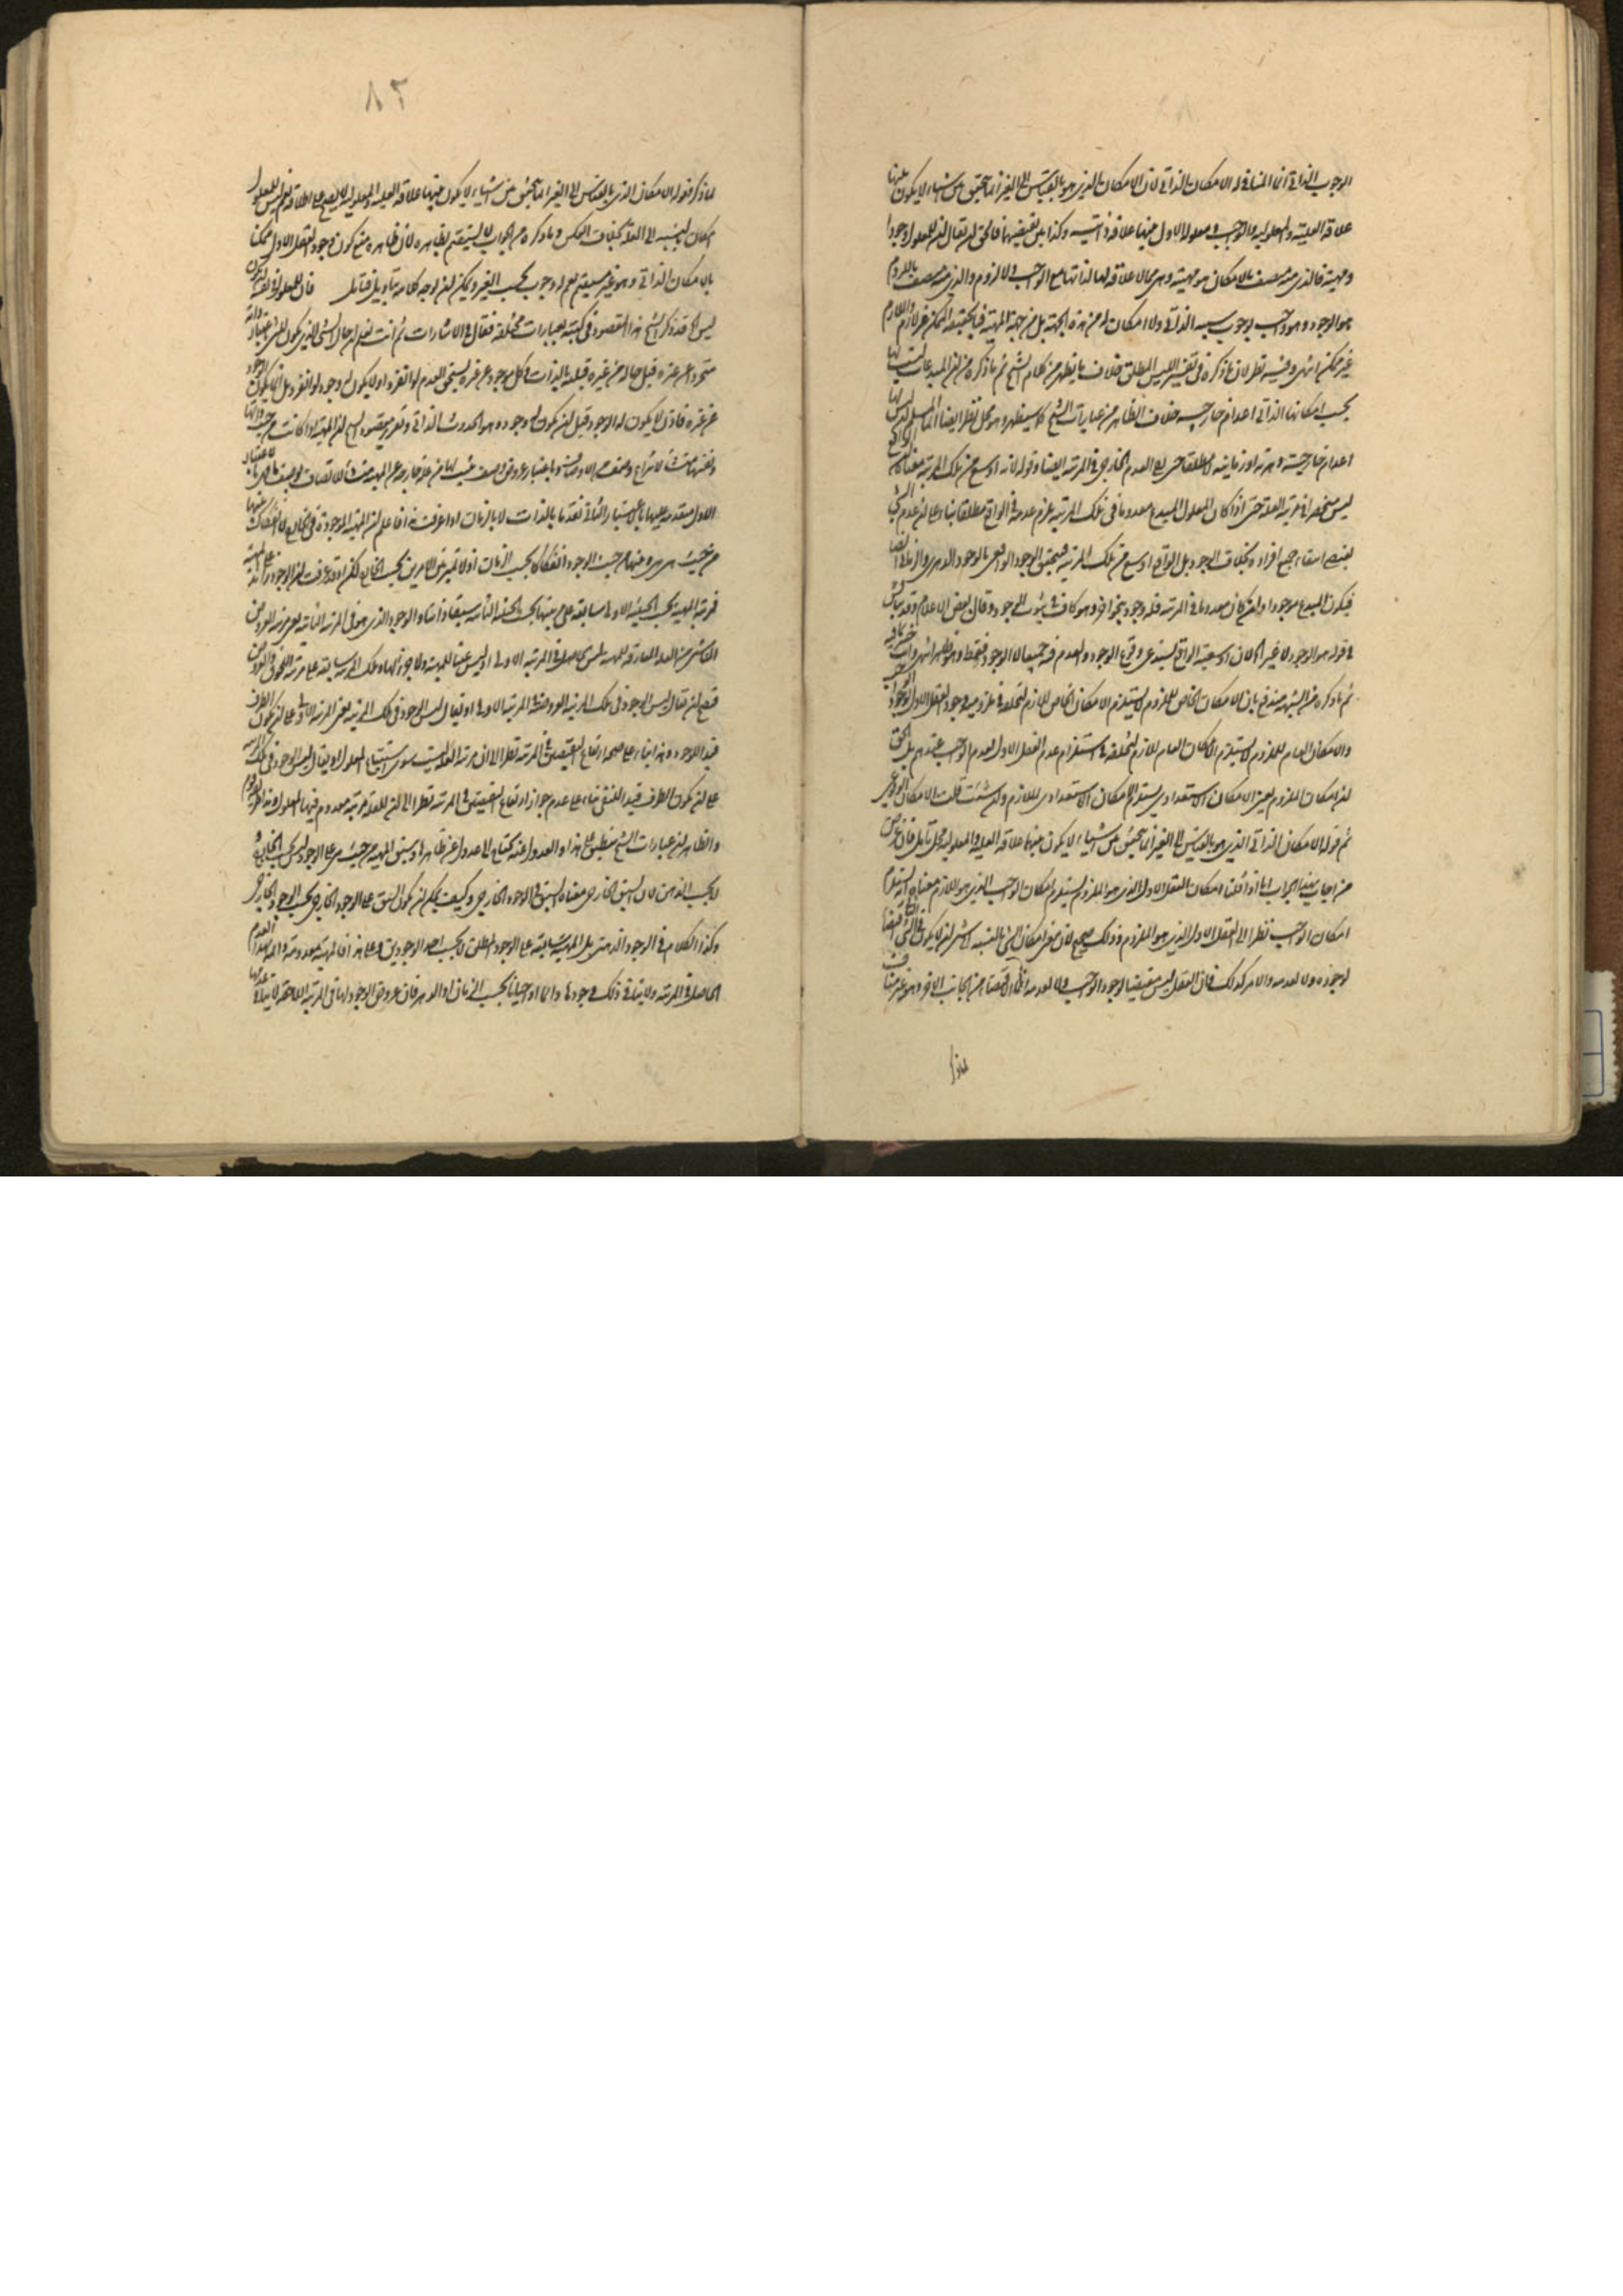 الوجوب الذاتي انما المنافي له الامكان الذاتي لان الامكان الذي هو بالقياس الى الغير انما يتحقق بين اشياء لا يكون بينها
علاقة العلية والمعلولية والواجب ومعلوله الاول بينهما علاقة ذاتية وكذا بين نقيضيهما فالحق ان يقال ان للمعلول وجودا
ومهية فالذي منه متصف بالامكان هو مهيته وهي مما لا علاقة لها لذاتها مع الواجب ولا لزوم والذي منه متصف باللزوم
هو الوجود وهو واجب بوجوب سببه الذاتي ولا امكان له من هذه الجهة بل من جهة المهية فبالحقيقة الممكن غير لازم واللازم
غير ممكن انتهى وفيه نظر لان ما ذكره في تفسير الليس المطلق خلاف ما يظهر من كلام الشيخ ثم ما ذكره من ان المبدعات ليست لها
بحسب امكانها الذاتي اعدام خارجية خلاف الظاهر من عبارات الشيخ كما سيظهر وهو محل نظر ايضا اذ المسلم ان ليس لها
اعدام خارجية دهرية او زمانية لا مطلقا حتى العدم الخارجي في المرتبة ايضا وقوله لانه اوسع من تلك المرتبة معناه ان الواقع
ليس منحصرا في مرتبة العلة حتى اذا كان المعلول المبدع معدوما في تلك المرتبة يلزم عدمه في الواقع مطلقا بناء على ان عدم الشيء
يقتضي انتفاء جميع افراده بخلاف الوجود بل الواقع اوسع من تلك المرتبة فيتحقق الوجود الواقعي بالوجود الدهري والزماني ايضا
فيكون المبدع موجودا وان كان معدوما في المرتبة فله وجود بنحو اخر وهو كاف في ثبوت الوجود وقال بعض الاعلام وقد
في قوله هو الوجود لا غير الخ لان اوسعية الواقع يستدعي وقوع الوجود والعدم فيه جميعا لا الوجود فقط وهو ظاهر انتهى وانت خبير بما فيه
ثم ما ذكره من الشبهة مندفع بان الامكان الخاص للملزوم لا يستلزم الامكان الخاص للازم لتخلفه في ملزومية وجود العقل الاول لوجود الواجب
والامكان العام للملزوم لا يستلزم الامكان العام للازم لتخلفه في استلزام عدم العقل الاول لعدم الواجب عندهم بل الحق
ان امكان الملزوم يعني الامكان الاستعدادي يستلزم الامكان الاستعدادي للازم وان شئت قلت الامكان الوقوعي
ثم قوله الامكان الذاتي الذي هو بالقياس الى الغير انما يتحقق بين اشياء لا يكون بينهما علاقة العلية والمعلولية محل تأمل فان غرض
من اجاب بهذا الجواب انا اذا قلنا امكان العقل الاول الذي هو الملزوم يستلزم امكان الواجب الذي هو اللازم معناه انه يستلزم
امكان الواجب نظرا الى العقل الاول الذي هو الملزوم وذلك صحيح لان معنى امكان الشيء بالنسبة الى شيء ان لا يكون الشيء الثاني مقتضيا
لوجوده ولا لعدمه والامر كذلك فان العقل ليس مقتضيا لوجود الواجب ولا لعدمه انما الاقتضاء من الجانب الاخر وهو غير مناف
لما ذكر
٨٢
لما ذكر فقوله الامكان الذي بالقياس الى الغير انما يتحقق بين اشياء لا يكون بينها علاقة العلية والمعلولية لا يصح على اطلاقه نعم ليس للمعلول
امكان بالنسبة الى العلة بخلاف العكس وما ذكره من الجواب لا يستقيم بظاهره لان ظاهره منع كون وجود العقل الاول ممكنا
بالامكان الذاتي وهو غير مستقيم نعم له وجوب بحسب الغير ويمكن ان يوجه كلامه بتأويل فتأمل قال المعلول في نفسه ان يكون
ليس الخ قد ذكر الشيخ هذا المقصود في كتبه بعبارات مختلفة فقال في الاشارات ثم انت تعلم ان حال الشيء الذي يكون للشيء باعتبار ذاته
متجردا عن غيره قبل حاله من غيره قبلية بالذات وكل موجود عن غيره يستحق العدم لو انفرد او لا يكون له وجود لو انفرد بل انما يكون الوجود
عن غيره فاذن لا يكون له الوجود قبل ان يكون له وجود وهو الحدوث الذاتي وتقرير مقصود الشيخ ان المهية اذا كانت من حيث ذاتها
ونفسها منشأ لانتزاع وصف من الاوصاف وباعتبار عروض وصف يثبت لها من علة خارجة عن المهية منشأ لاتصاف بوصف اخر كانت باعتبار
الاول متقدمة عليها باعتبار الثاني تقدما بالذات لا بالزمان اذا عرفت هذا فاعلم ان المهية الموجودة في الخارج لا انفكاك بينها
من حيث هي هي وبينها من حيث الوجود انفكاكا بحسب الزمان اذ لا تميز بين الامرين بحسب الخارج لكن اذ قد عرفت ان الوجود زائد على المهية
فمرتبة المهية بحسب الحيثية الاولى سابقة على مرتبتها بحسب الحيثية الثانية سبقا ذاتيا والوجود الذي هو في المرتبة الثانية يعني مرتبة العروض
الناشي من العلة المفارقة للمهية ليس حاصلا في المرتبة الاولى اذ ليس عينا للمهية ولا جزءا لها وتلك المرتبة سابقة على مرتبة اللحوق والعروض
فصح ان يقال ليس الوجود في تلك المرتبة المفروضة في المرتبة الاولى او يقال ليس الوجود في تلك المرتبة يعني المرتبة الاولى على ان يكون الظرف
قيدا للوجود وهذا بناء على صحة ارتفاع النقيضين في المرتبة نظرا الى ان مرتبة العلة ليست سوى استتباع المعلول او يقال ليس الوجود في تلك المرتبة
على ان يكون الظرف قيدا للنفي بناء على عدم جواز ارتفاع النقيضين في المرتبة نظرا الى ان للعلة مرتبة معدوم فيها المعلول
والظاهر ان عبارات الشيخ منطبق على هذا والعدول عنه يحتاج الى عدول عن ظاهرها وسبق المهية من حيث هي على الوجود ليس بحسب الخارج
لا بحسب الذهن لان السبق الخارجي معناه السبق في الوجود الخارجي وكيف يمكن ان يكون السبق على الوجود الخارجي بحسب الوجود الخارجي
وكذا الكلام في الوجود الذهني بل المهية سابقة على الوجود المطلق لا بحسب احد الوجودين وعلى هذا فالمهية معدومة
الحاصل في المرتبة ولا ينافي ذلك وجودها دائما او احيانا بحسب الزمان او الدهر فان عروض الوجود لها في المرتبة اللاحقة لا ينافي